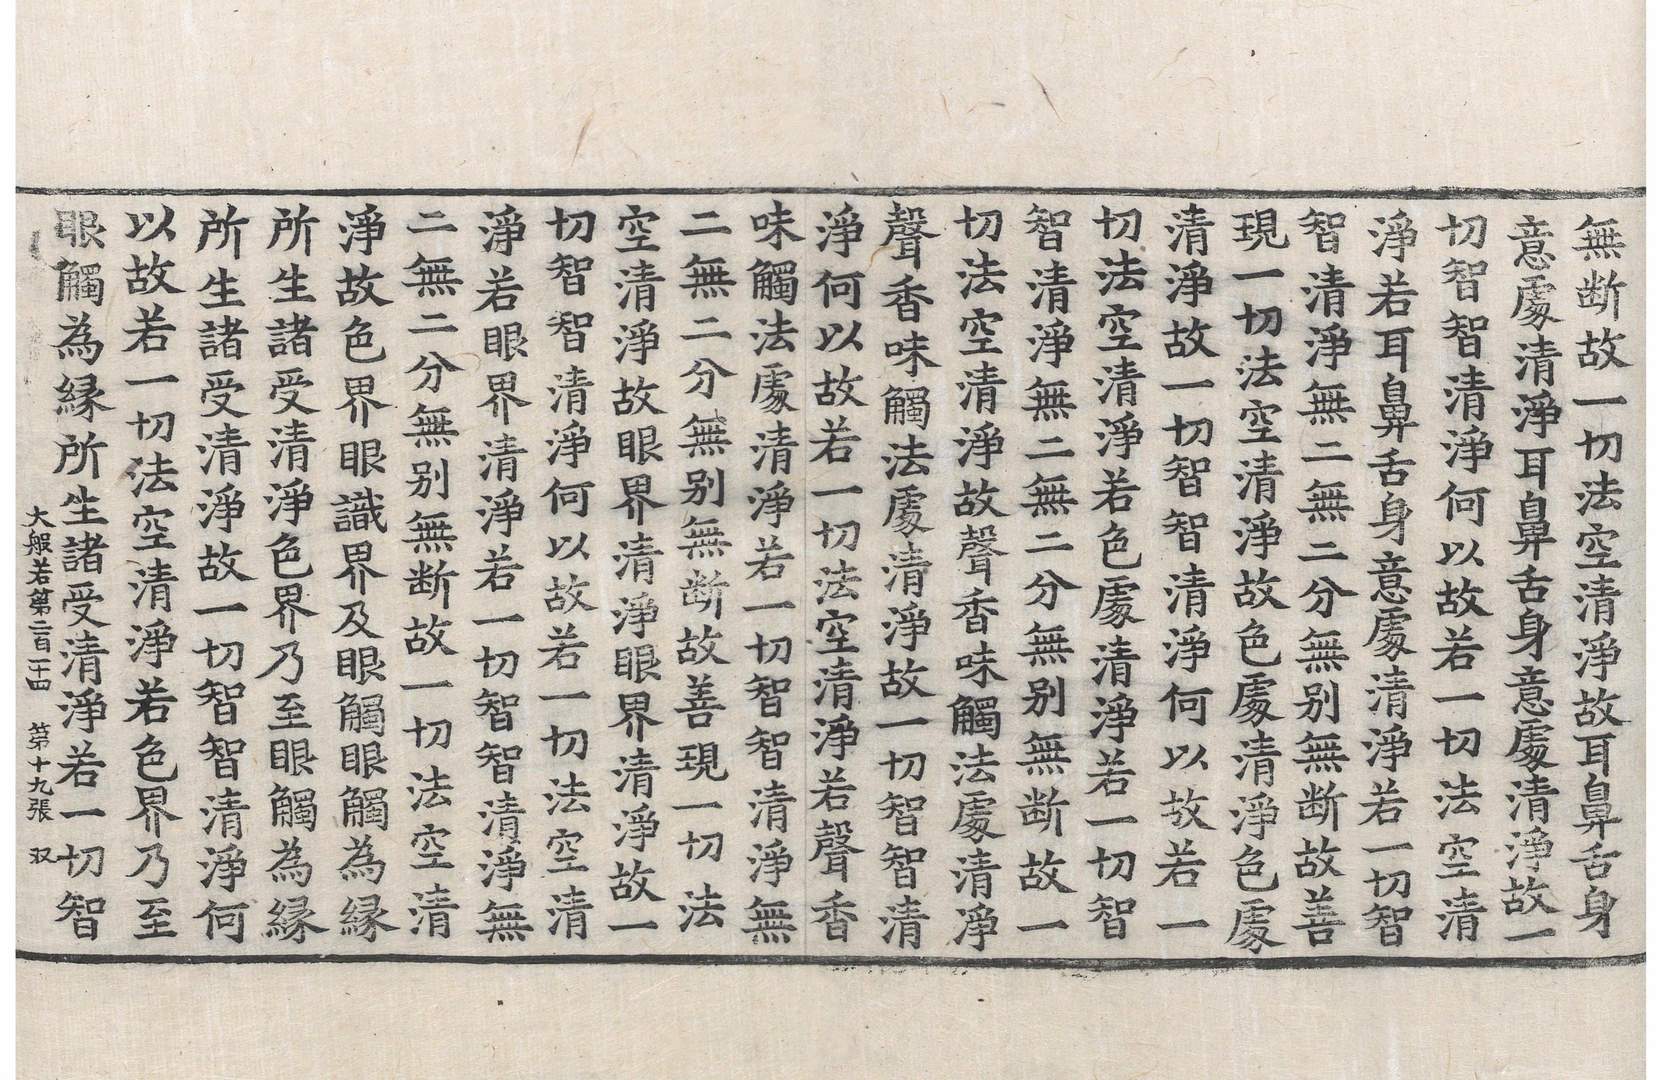 無断故一切法空清淨故耳鼻舌身
意處清淨耳鼻舌身意處清淨故一
切智智清淨何以故若一切法空清
淨若耳鼻舌身意處清淨若一切智
智清淨無二無二分無别無断故善
現一切法空清淨故色處清淨色處
清淨故一切智智清淨何以故若一
切法空清淨若色處清淨若一切智
智清淨無二無二分無别無断故一
切法空清淨故聲香味觸法處清淨
聲香味觸法處清淨故一切智智清
淨何以故若一切法空清淨若聲香
味觸法處清淨若一切智智清淨無
二無二分無别無断故善現一切法
空清淨故眼界清淨眼界清淨故一
切智智清淨何以故若一切法空清
淨若眼界清淨若一切智智清淨無
二無二分無别無断故一切法空清
淨故色界眼識界及眼觸眼觸為縁
所生諸受清淨色界乃至眼觸為縁
所生諸受清淨故一切智智清淨何
以故若一切法空清淨若色界乃至
眼觸為縁所生諸受清淨若一切智
大般若第二百二十四 第十九張 双